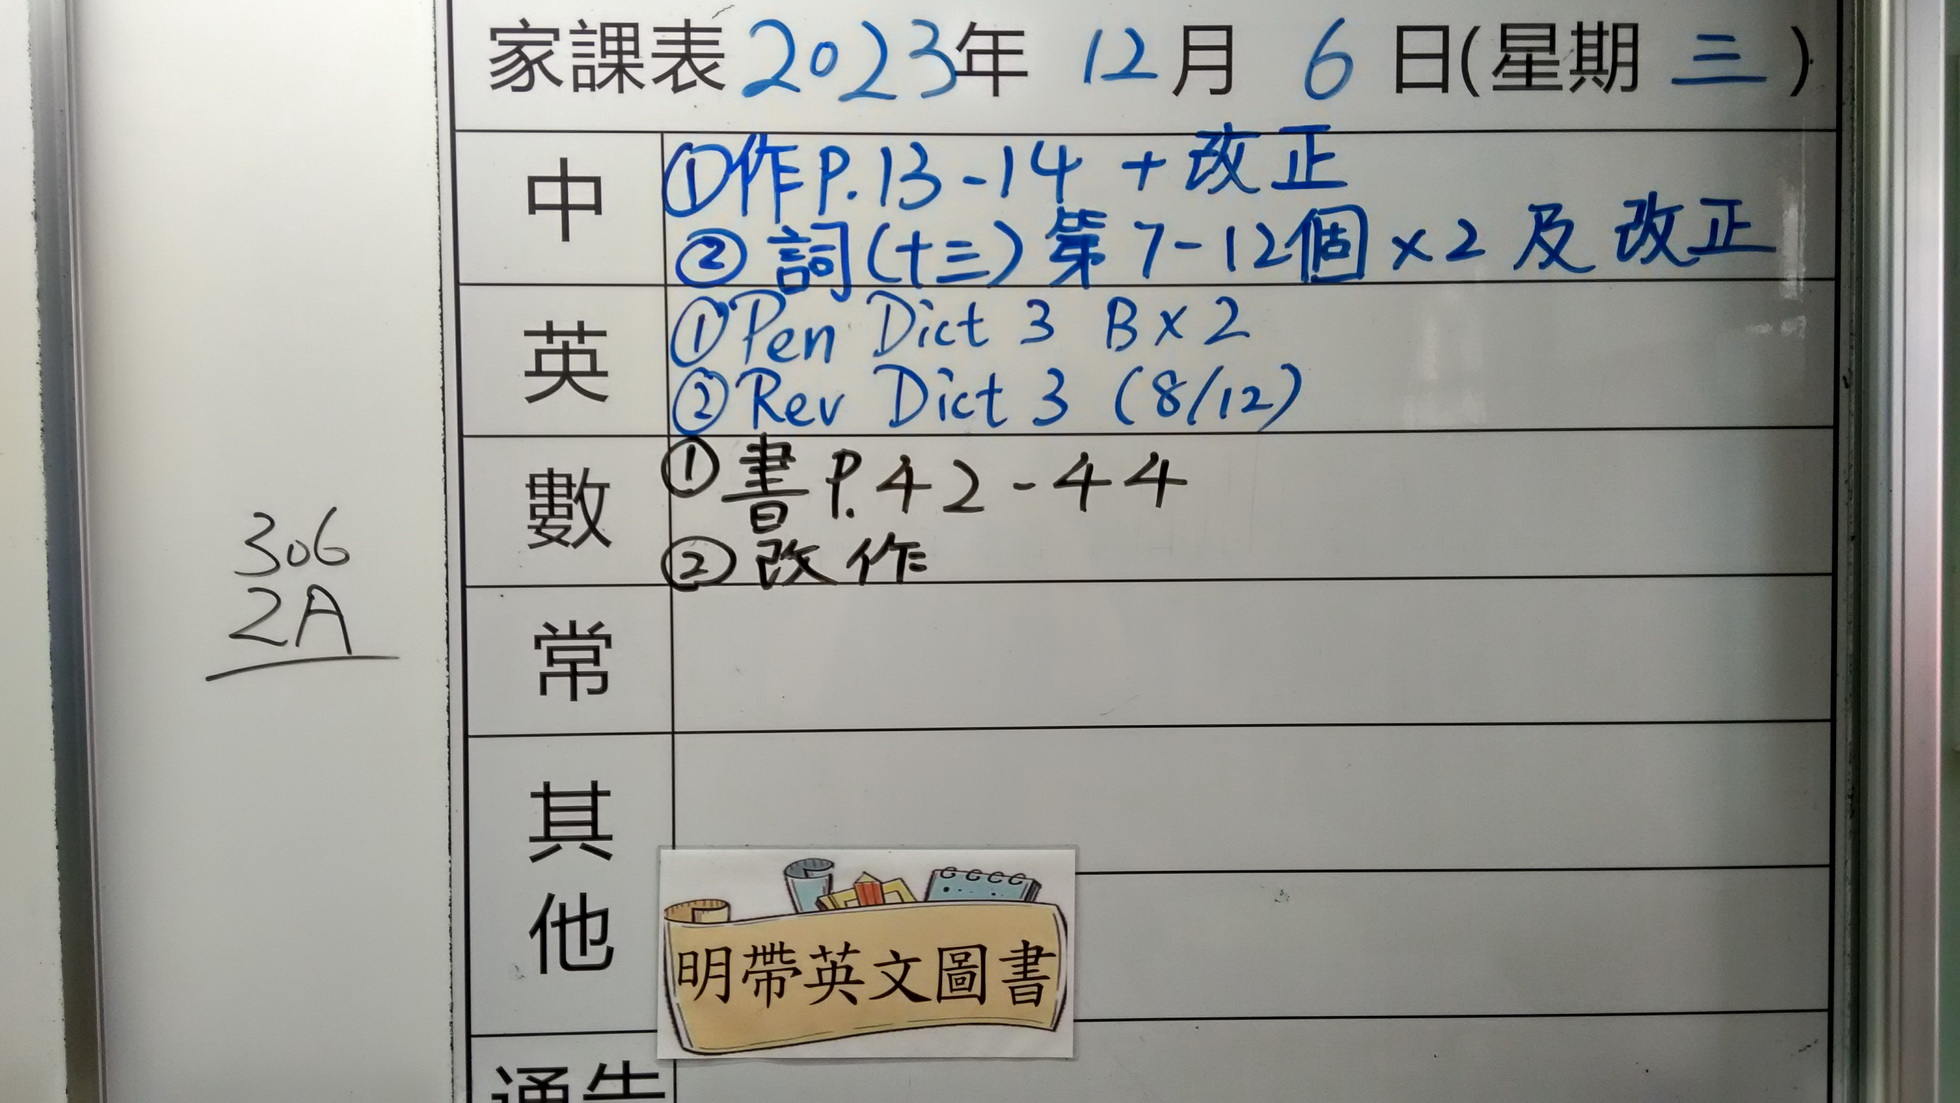 家課表 2023年 12月 6日(星期三)
中
①作P.13-14 + 改正
②詞(十三)第7-12個×2及改正
英
①Pen Dict 3 B×2
②Rev Dict 3 (8/12)
數
①書P.42-44
②改作
常
其他
明帶英文圖書
通告
306
2A